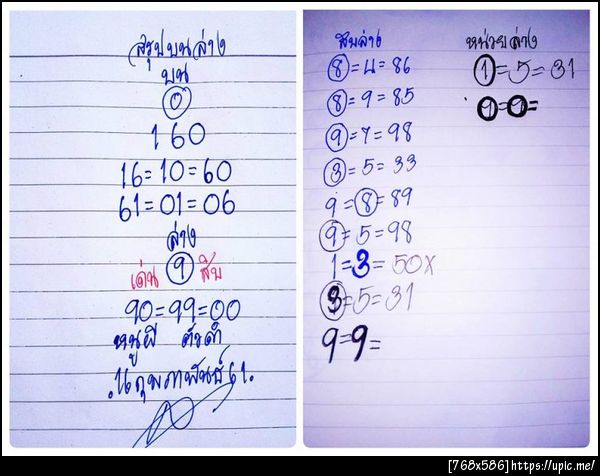 สรุปบนล่าง
บน
0
160
16=10=60
61=01=06
ล่าง
เด่น 9 สิบ
90=99=00
หนูผี ตัวดำ
กุมภาพันธ์ 61.
สิบล่าง
8=4=86
8=9=85
9=7=98
3=5=33
9=8=89
9=5=98
1=3=50X
3=5=31
9=9=
หน่วยล่าง
1=5=31
9=9=
[768x586]https://upic.me/